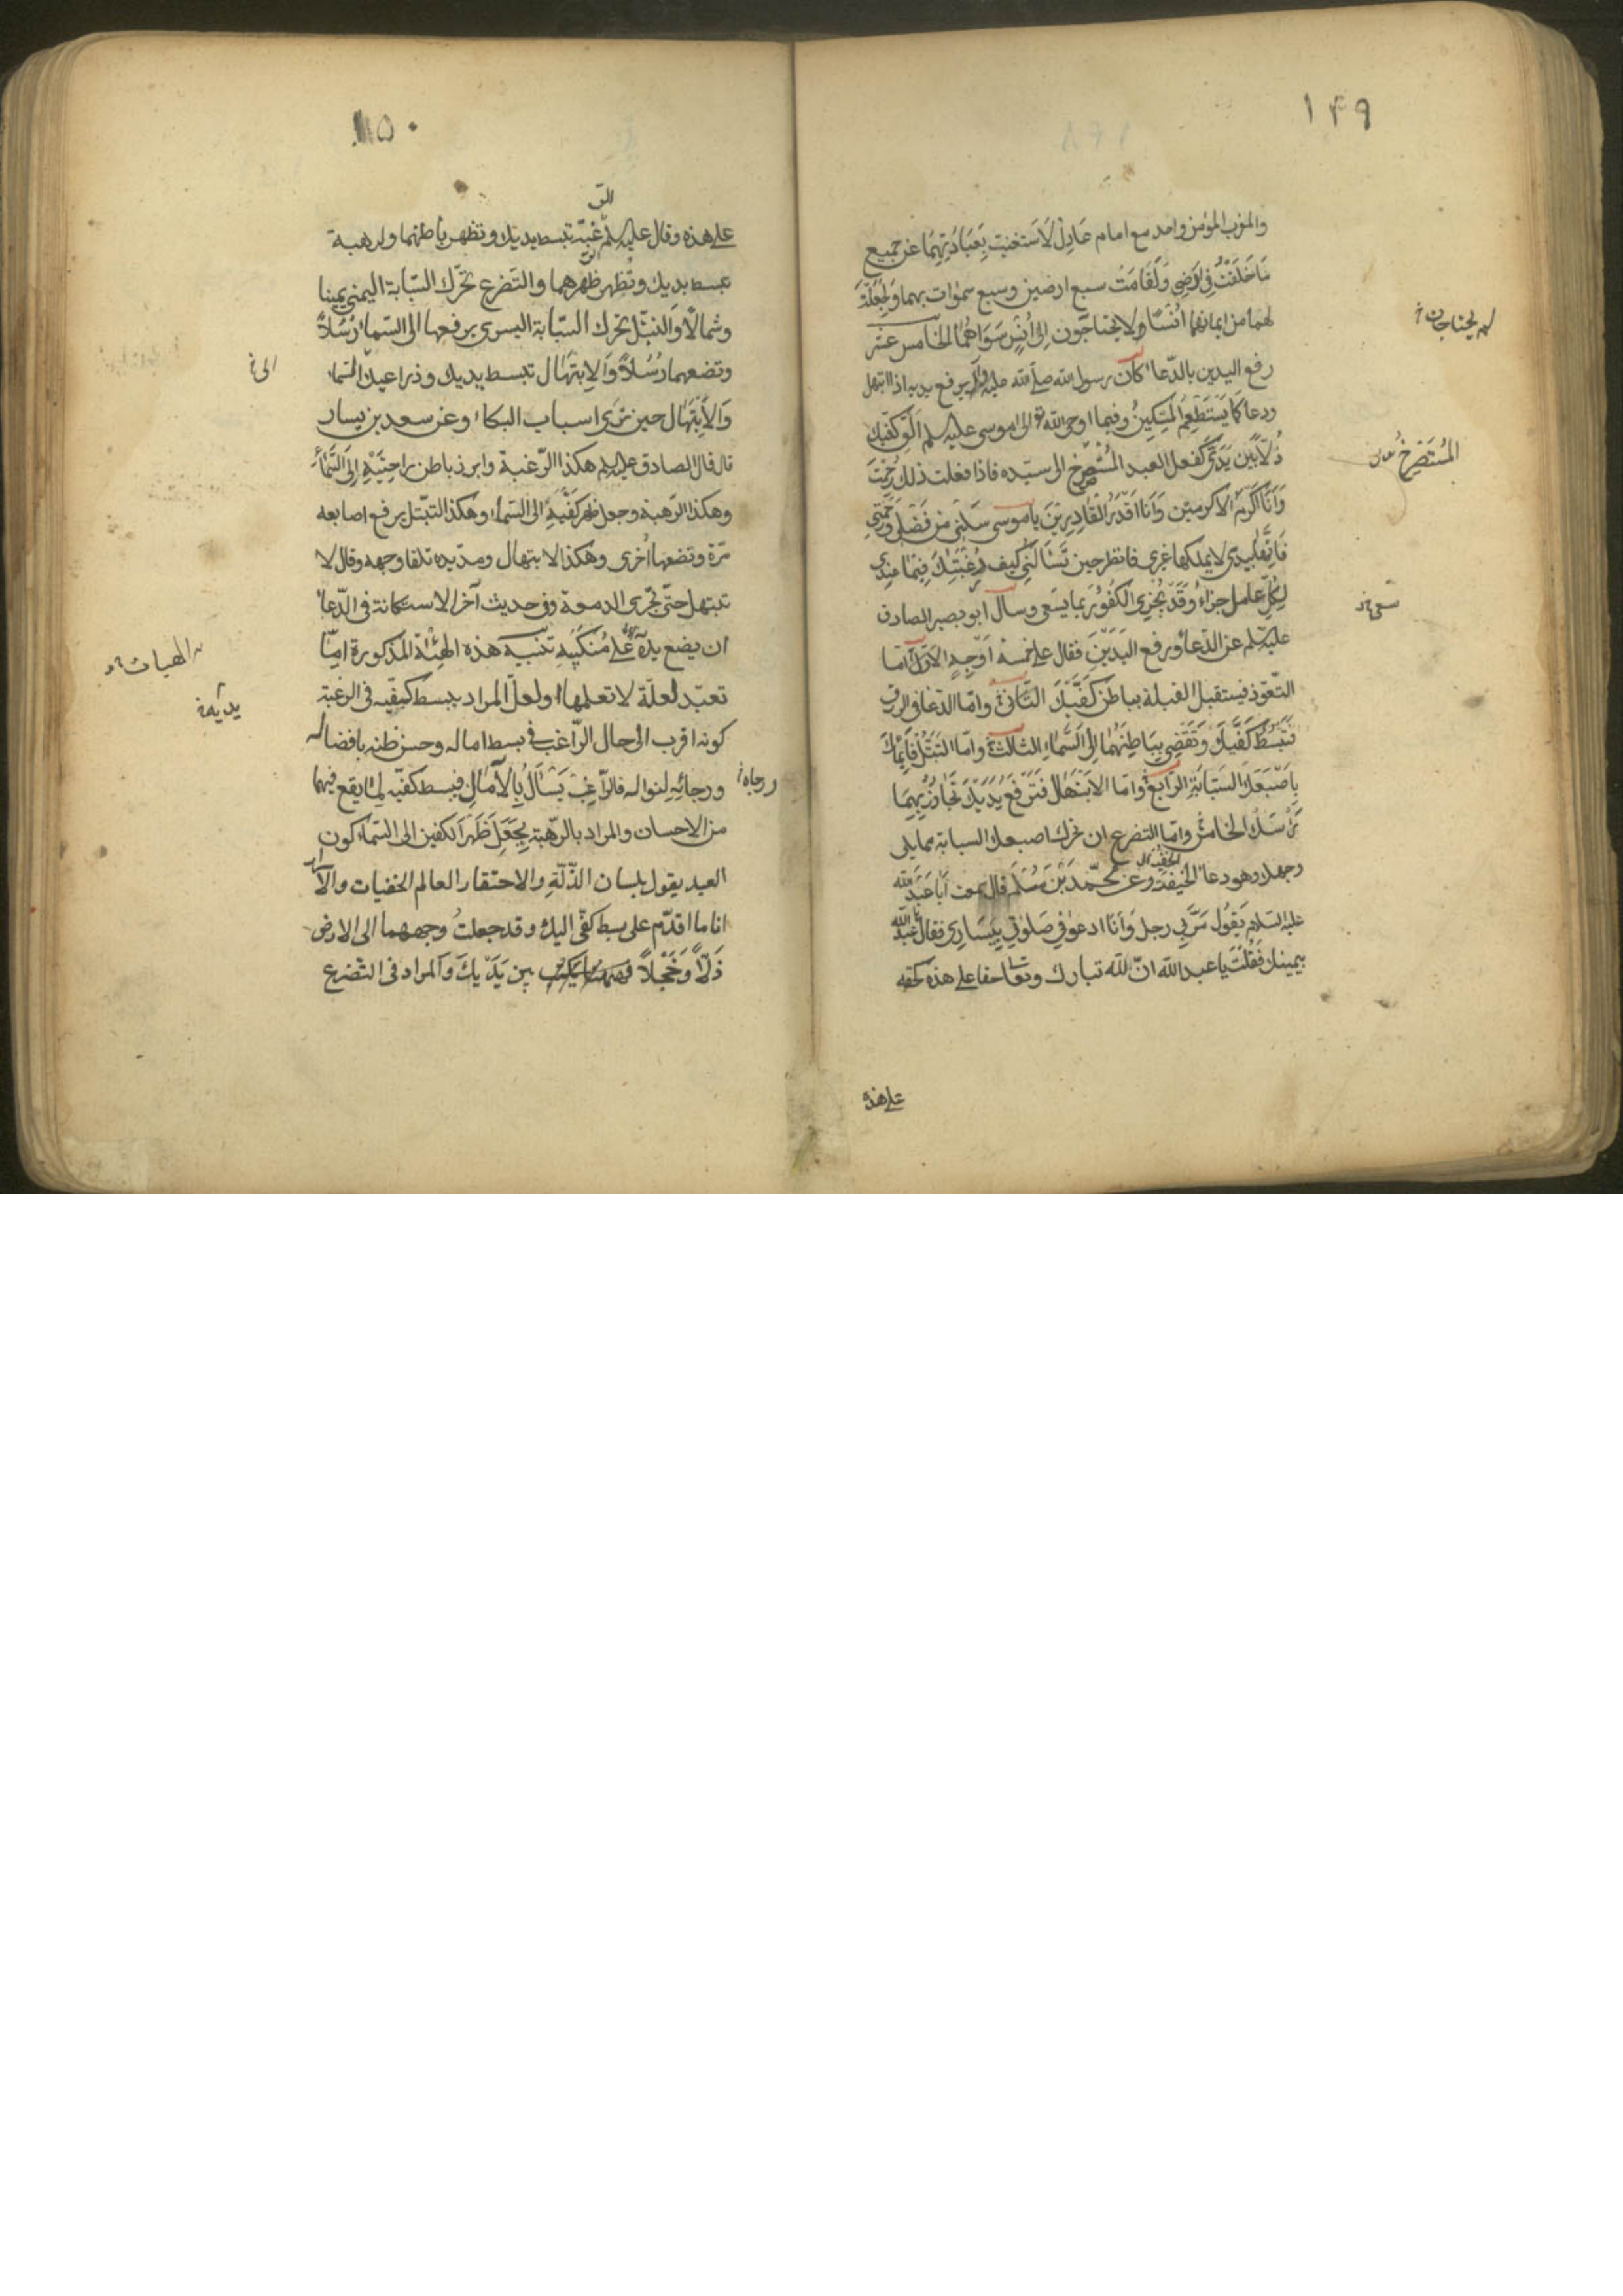 ١٤٩
والمغرب المؤمن واحد مع امام عَادِلٌ لَاسْتَغنيت بِعِبَادَتِهِمَا عَن جميع
مَا خَلَقْتُ فِي اَرْضِي وَلَقَامَتْ سبع ارضين وسبع سموات بهما وَلَجَعَلْتُ
لهما من ايمانهما اُنْسًا ولا يحتاجون اِلَى اُنْسٍ سَوَاهُمَا الخامس عشر
لم يحتاجان
رفع اليدين بالدّعاء كان رسول الله صلى الله عليه وآله يرفع يديه اذا ابتهل
ودعا كَمَا يَسْتَطْعِمُ المِسْكِينُ وفيما اوحى الله تع الى موسى عليه السلم اَلْقِ كَفَّيْكَ
ذُلًّا بَيْنَ يَدَيَّ كَفعل العبد المُسْتَصْرِخِ الى سيّده فاذا فعلت ذلك رُحِمْتَ
المُسْتَصْرِخُ
وَاَنَا اَكْرَمُ الاكرمين وَاَنَا اَقْدَرُ القَادِرِينَ يا موسى سَلْنِي من فَضْلِي وَرَحْمَتِي
فَاِنَّهَا بِيَدِي لا يملكها غيري فانظر حين تَسْأَلُنِي كيف رَغْبَتُكَ فِيمَا عِنْدِي
لِكُلِّ عامل جزاء وَقَدْ يُجْزَى الكَفُورُ بما يَسْعَى وسأل ابو بصير الصادق
سعى
عليه السلم عن الدّعاء ورفع اليَدَيْنِ فقال على خمسة اَوْجُهٍ الاوّل امّا
التّعوّذ فيستقبل القبلة بباطن كَفَّيْكَ الثاني وامّا الدّعاء في الرزق
فَتَبْسُطُ كَفَّيْكَ وَتُفْضِي بِبَاطِنِهِمَا اِلَى السَّمَاءِ الثالث وامّا التبتّل فَاِيمَاؤُكَ
بِاِصْبَعِكَ السَّبَّابَةِ الرّابع وامّا الابتهال فَتَرْفَعُ يَدَيْكَ تُجَاوِزُ بِهِمَا
رَاْسَكَ الخامس وامّا التضرع ان تحرك اصبعك السبابة مما يلي
وجهك وهو دعاء الخيفة وعن محمّد بْنِ مُسْلِم قال سمعت اَبَا عَبْدِ الله
عليه السلام يَقُولُ مَرَّ بِي رجل وَاَنَا ادعو فِي صَلوتِي بِيَسَارِي فقال يا عبد الله
بيمينك فَقُلْتُ يا عبد الله انّ لله تبارك وتعا حقا على هذه كحقه
على هذه
١٥٠
على هذه وقال عليه السلم الرّغبة تبسط يديك وتظهر باطنهما والرهبة
تبسط يديك وتُظهر ظهرهما والتضرع تحرّك السّبابة اليمنى يمينا
وشمالًا وَالتبتّل تحرك السّبّابة اليسرى ترفعها الى السّماء رُسُلًا
وتضعها رُسُلًا وَالاِبتِهَال تبسط يديك وذراعيك السّماء
الى
وَالاِبْتِهَال حين تَرَى اسباب البكاء وعن سعد بن يسار
قال قال الصادق عليه السلم هكذا الرّغبة وابرز باطن راحتَيْهِ اِلَى السَّمَاءِ
وهكذا الرّهبة وجعل ظهر كَفَّيْهِ الى السّماء وهكذا التبتّل يرفع اصابعه
مرّة وتضعها اُخْرى وهكذا الابتهال ومدّ يده تلقا وجهه وقال لا
تبتهل حتّى تجرى الدمعة وفي حديث آخر الاستكانة في الدّعاء
ان يضع يده على مَنْكِبَيْهِ تنبيه هذه الهيئة المذكورة امّا
الهيات
يديه
تعبّد لعلّة لا تعلمها او لعلّ المراد ببسط كفيه في الرغبة
كونه اقرب الى حال الرّاغب في بسط اماله وحسن ظنه بافضاله
ورجائِهِ لنواله فالرّاغِب يَسْأَلُ بِالآمَالِ فيبسط كفيّه لِمَا يقع فيهما
ورجاه
من الاحسان والمراد بالرّهبة بِجَعْلِ ظَهْر الكفين الى السّماء كون
العبد يقول بلسان الذّلّةِ والاحتقار العالم الخفيات والاسرار
انا ما اقدّم على بسط كفّي اليك وقد جعلتُ وجههما الى الارض
ذُلًّا وَخَجَلًا بين يَدَيْكَ والمراد في التضرع